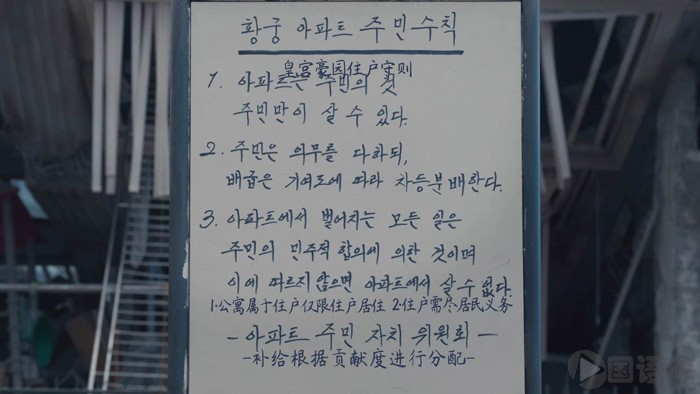 황궁 아파트 주민수칙
皇宫豪园住户守则
1. 아파트는 주민의 것
주민만이 살 수 있다.
2. 주민은 의무를 다하되,
배급은 기여도에 따라 차등분배한다.
3. 아파트에서 벌어지는 모든 일은
주민의 민주적 합의에 의한 것이며
이에 따르지 않으면 아파트에서 살 수 없다.
1.公寓属于住户仅限住户居住 2.住户需尽居民义务
- 아파트 주민 자치 위원회 -
-补给根据贡献度进行分配-
国语